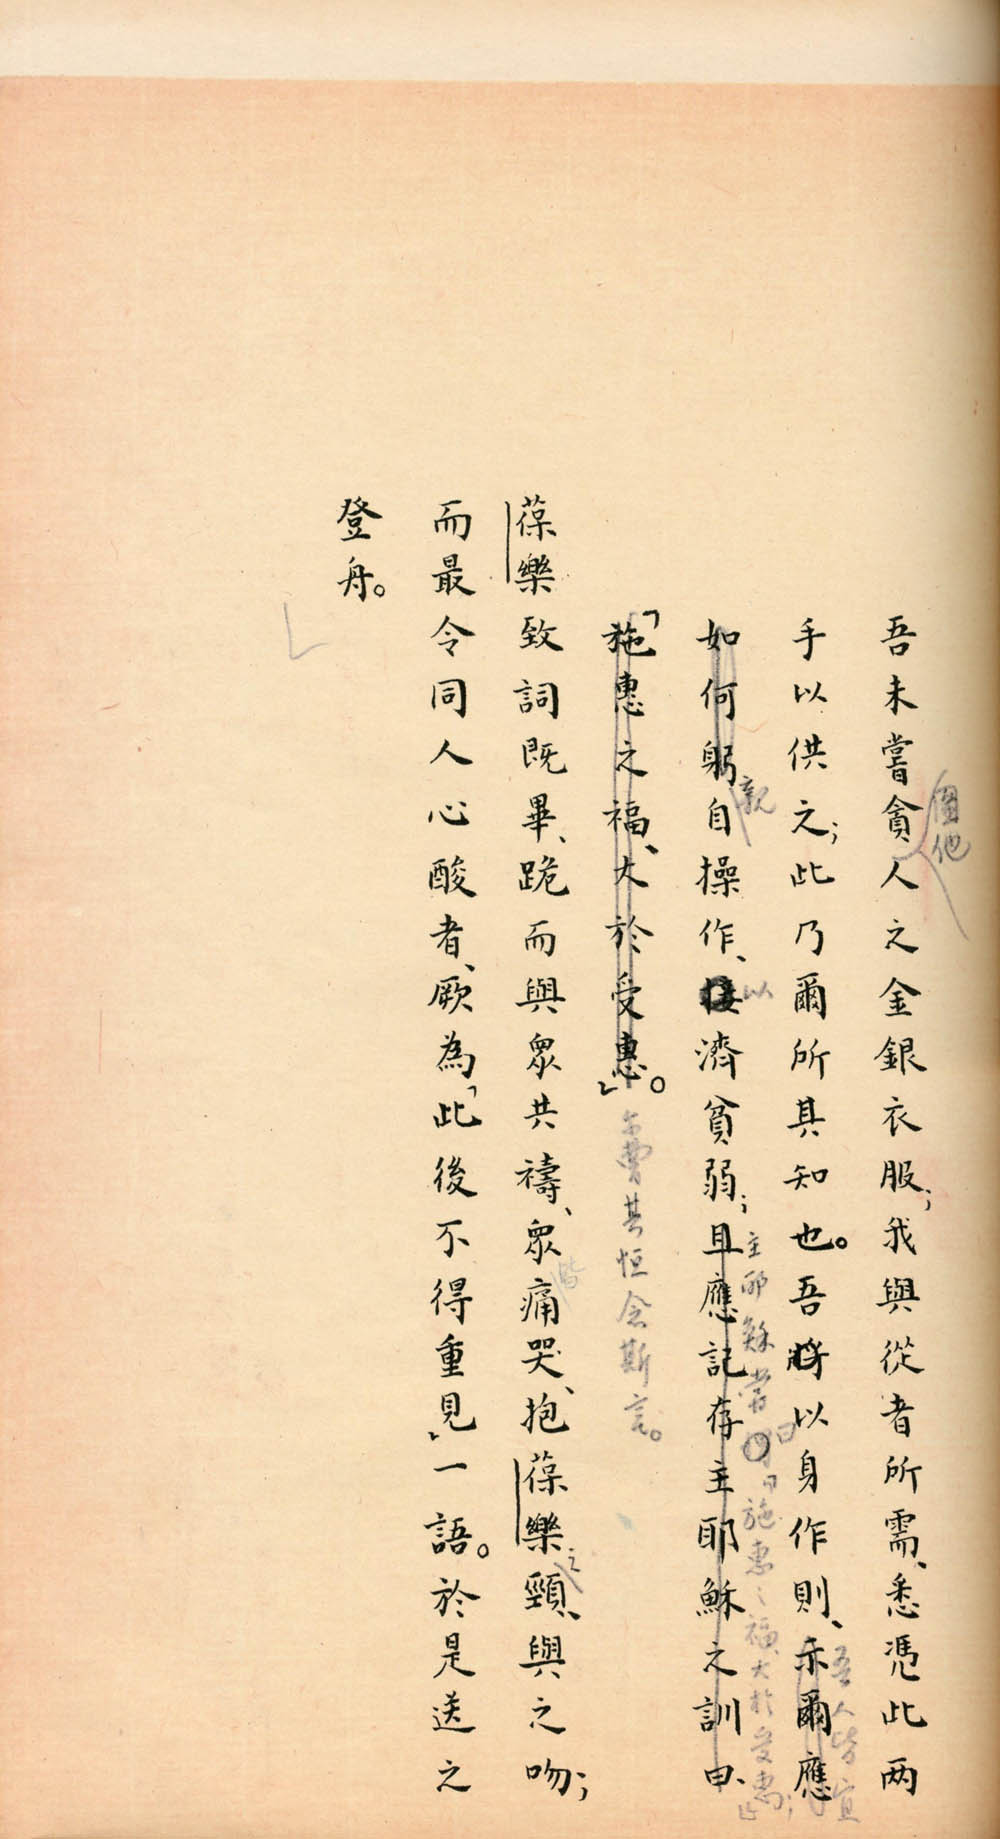 吾未嘗貪人之金銀衣服;我與從者所需、悉憑此两
圖他
手以供之;此乃爾所其知也。吾將以身作則、示爾應
吾人皆宜
如何躬自操作、濟貧弱;且應記存主耶穌之訓曰、
親
以
主耶穌嘗曰「施惠之福、大於受惠」;
「施惠之福、大於受惠」。
爾曹其恒念斯言。
葆樂致詞既畢、跪而與眾共禱、眾痛哭、抱葆樂頸、與之吻;
皆
之
而最令同人心酸者、厥為「此後不得重見」一語。於是送之
登舟。